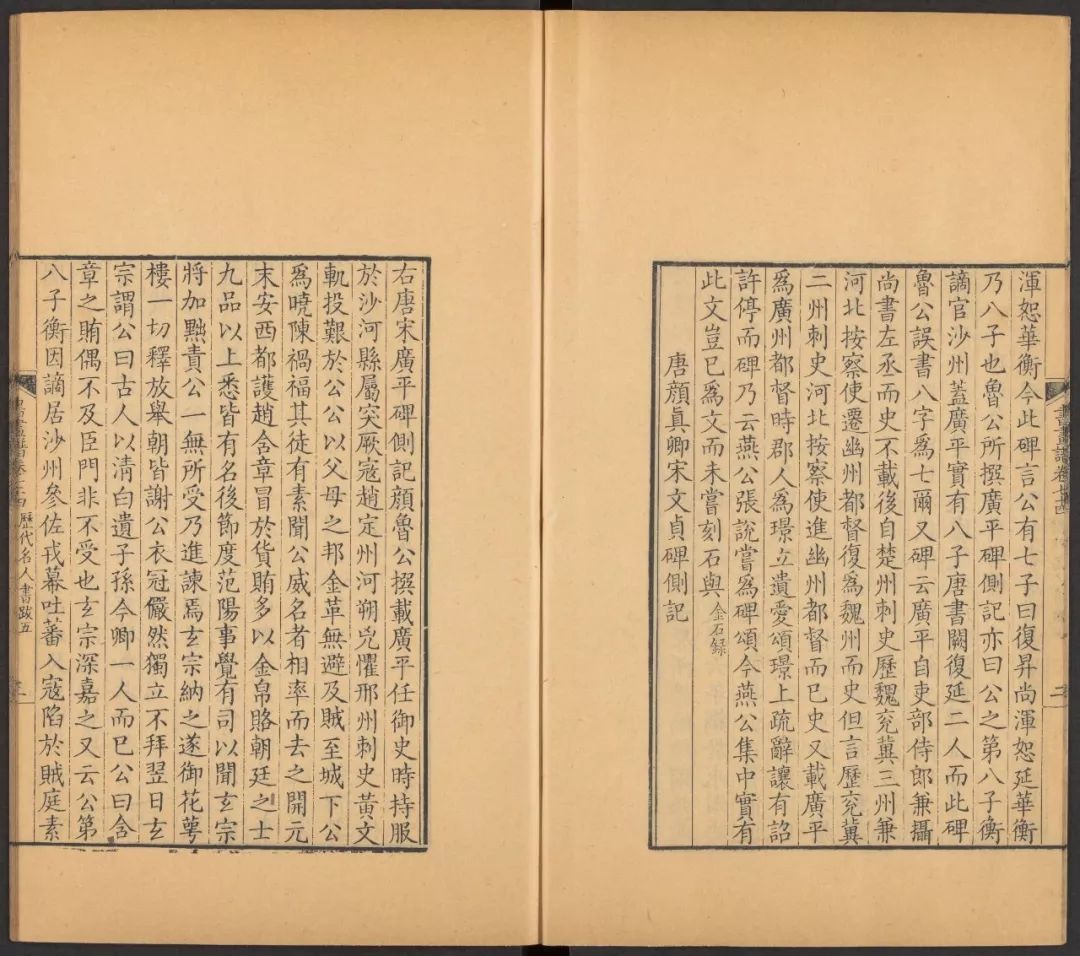 渾恕華衡今此碑言公有七子曰復昇尚渾恕延華衡
乃八子也魯公所撰廣平碑側記亦曰公之第八子衡
謫官沙州蓋廣平實有八子唐書闕復延二人而此碑
魯公誤書八字爲七爾又碑云廣平自吏部侍郎兼攝
尚書左丞而史不載後自楚州刺史歷魏兖冀三州兼
河北按察使遷幽州都督復爲魏州而史但言歷兖冀
二州刺史河北按察使進幽州都督而已史又載廣平
爲廣州都督時郡人爲璟立遺愛頌璟上疏辭讓有詔
許停而碑乃云燕公張說嘗爲碑頌今燕公集中實有
此文豈已爲文而未嘗刻石與 金石録
唐顔眞卿宋文貞碑側記
右唐宋廣平碑側記顔魯公撰載廣平任御史時持服
於沙河縣屬突厥寇趙定州河朔兇懼邢州刺史黃文
軌投艱於公公以父母之邦金革無避及賊至城下公
爲曉陳禍福其徒有素聞公威名者相率而去之開元
末安西都護趙含章冒於貨賄多以金帛賂朝廷之士
九品以上悉皆有名後節度范陽事覺有司以聞玄宗
將加黜責公一無所受乃進諫焉玄宗納之遂御花萼
樓一切釋放舉朝皆謝公衣冠儼然獨立不拜翌日玄
宗謂公曰古人以清白遺子孫今卿一人而已公曰含
章之賄偶不及臣門非不受也玄宗深嘉之又云公第
八子衡因謫居沙州參佐戎幕吐蕃入寇陷於賊庭素
歷代名人書跋五